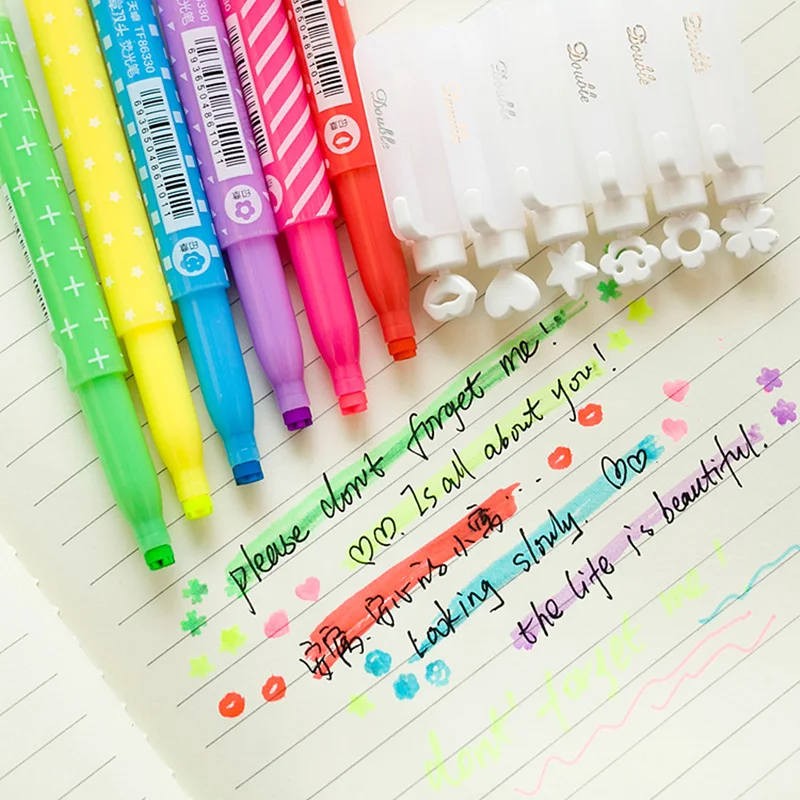 天卓 TF86330
双头 荧光笔
6936504861011
印章
330
光笔
6936504861011
印章
6936504861011
印章
Double
Double
Double
Double
Double
Double
please dont forget me!
♡♡. Is all about you!
Looking slowly. ♡♡
the life is beautiful.
dont' forget me!